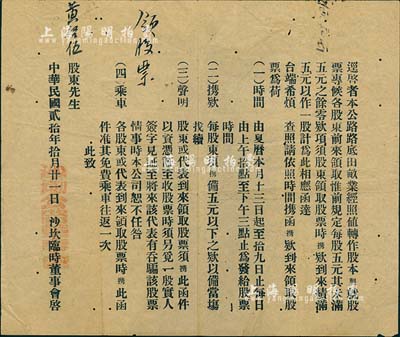 領股票
逕啓者本公路路底田畝業經照值轉作股本製股
票專候各股東前來領取惟前規定每股五元其未滿
五元之餘零欵項須股東領取股票時携欵到來續滿
五元以作一股計爲此相應函達
台端希煩 查照請依照時間携函携欵到來領取股
票爲荷
(一)時間 由夏曆本月十三日起至拾九日止每日
由上午拾點至下午三點止爲發給股票
時間
(二)携欵 每股東須携備五元以下之欵以備當塲
找續
(三)聲明 股東或代表到來領取股票須携此函件
以資憑証至收股票時須另覓一股實人
簽字見証至將來該代表有吞騙該股票
情事時本公司恕不任咎
(四)乘車 各股東或代表到來領取股票時携此函
件准其免費乘車往返一次
此致
股東先生
中華民國貳拾年拾月廿一日 沙坎臨時董事會啓